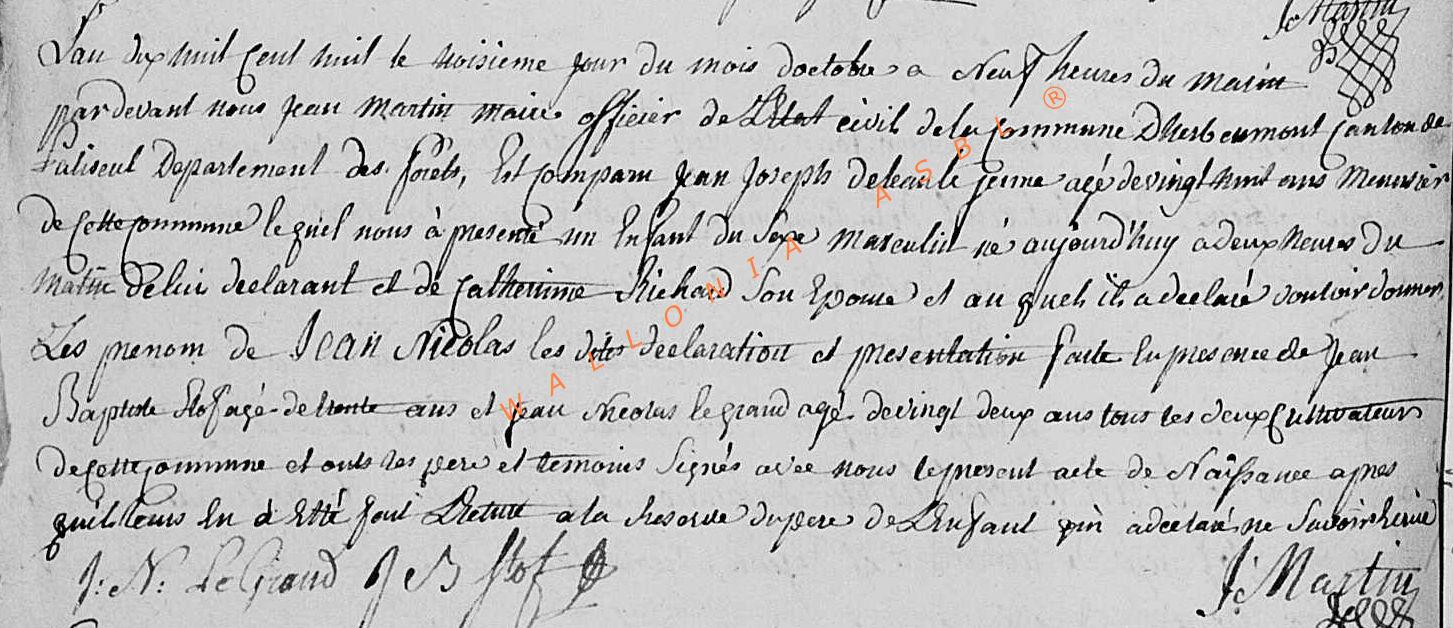 J. Martin
L'an dix huit Cent huit le troisieme jour du mois d'octobre a Neuf heures du matin
pardevant nous Jean Martin maire officier de L'Etat civil de la commune Dherbeumont Canton de
Paliseul Departement des forêts, Est Comparu Jean Joseph jeune agé de vingt huit ans Meunier
de Cette Commune lequel nous à presenté un Enfant du Sexe Masculin né aujourd'huy a deux heures du
Matin De lui declarant et de Catherinne Richard Son Epouse et au quel il a declaré vouloir donner
Les prenom de Jean Nicolas les dites declaration et presentation faite En presence de Jean
Baptiste Stof agé de trente ans et jean Nicolas le grand agé de vingt deux ans tous les deux Cultivateurs
de Cette Commune et onts les pere et temoins Signés avec nous le present acte de Naissance apres
quil leurs En a Etté fait Lecture a la Reserve du pere de L'Enfant qui a declaré ne Savoir
J: N: LeGrand J B Stof
J. Martin
WALLONIA ASBL ®